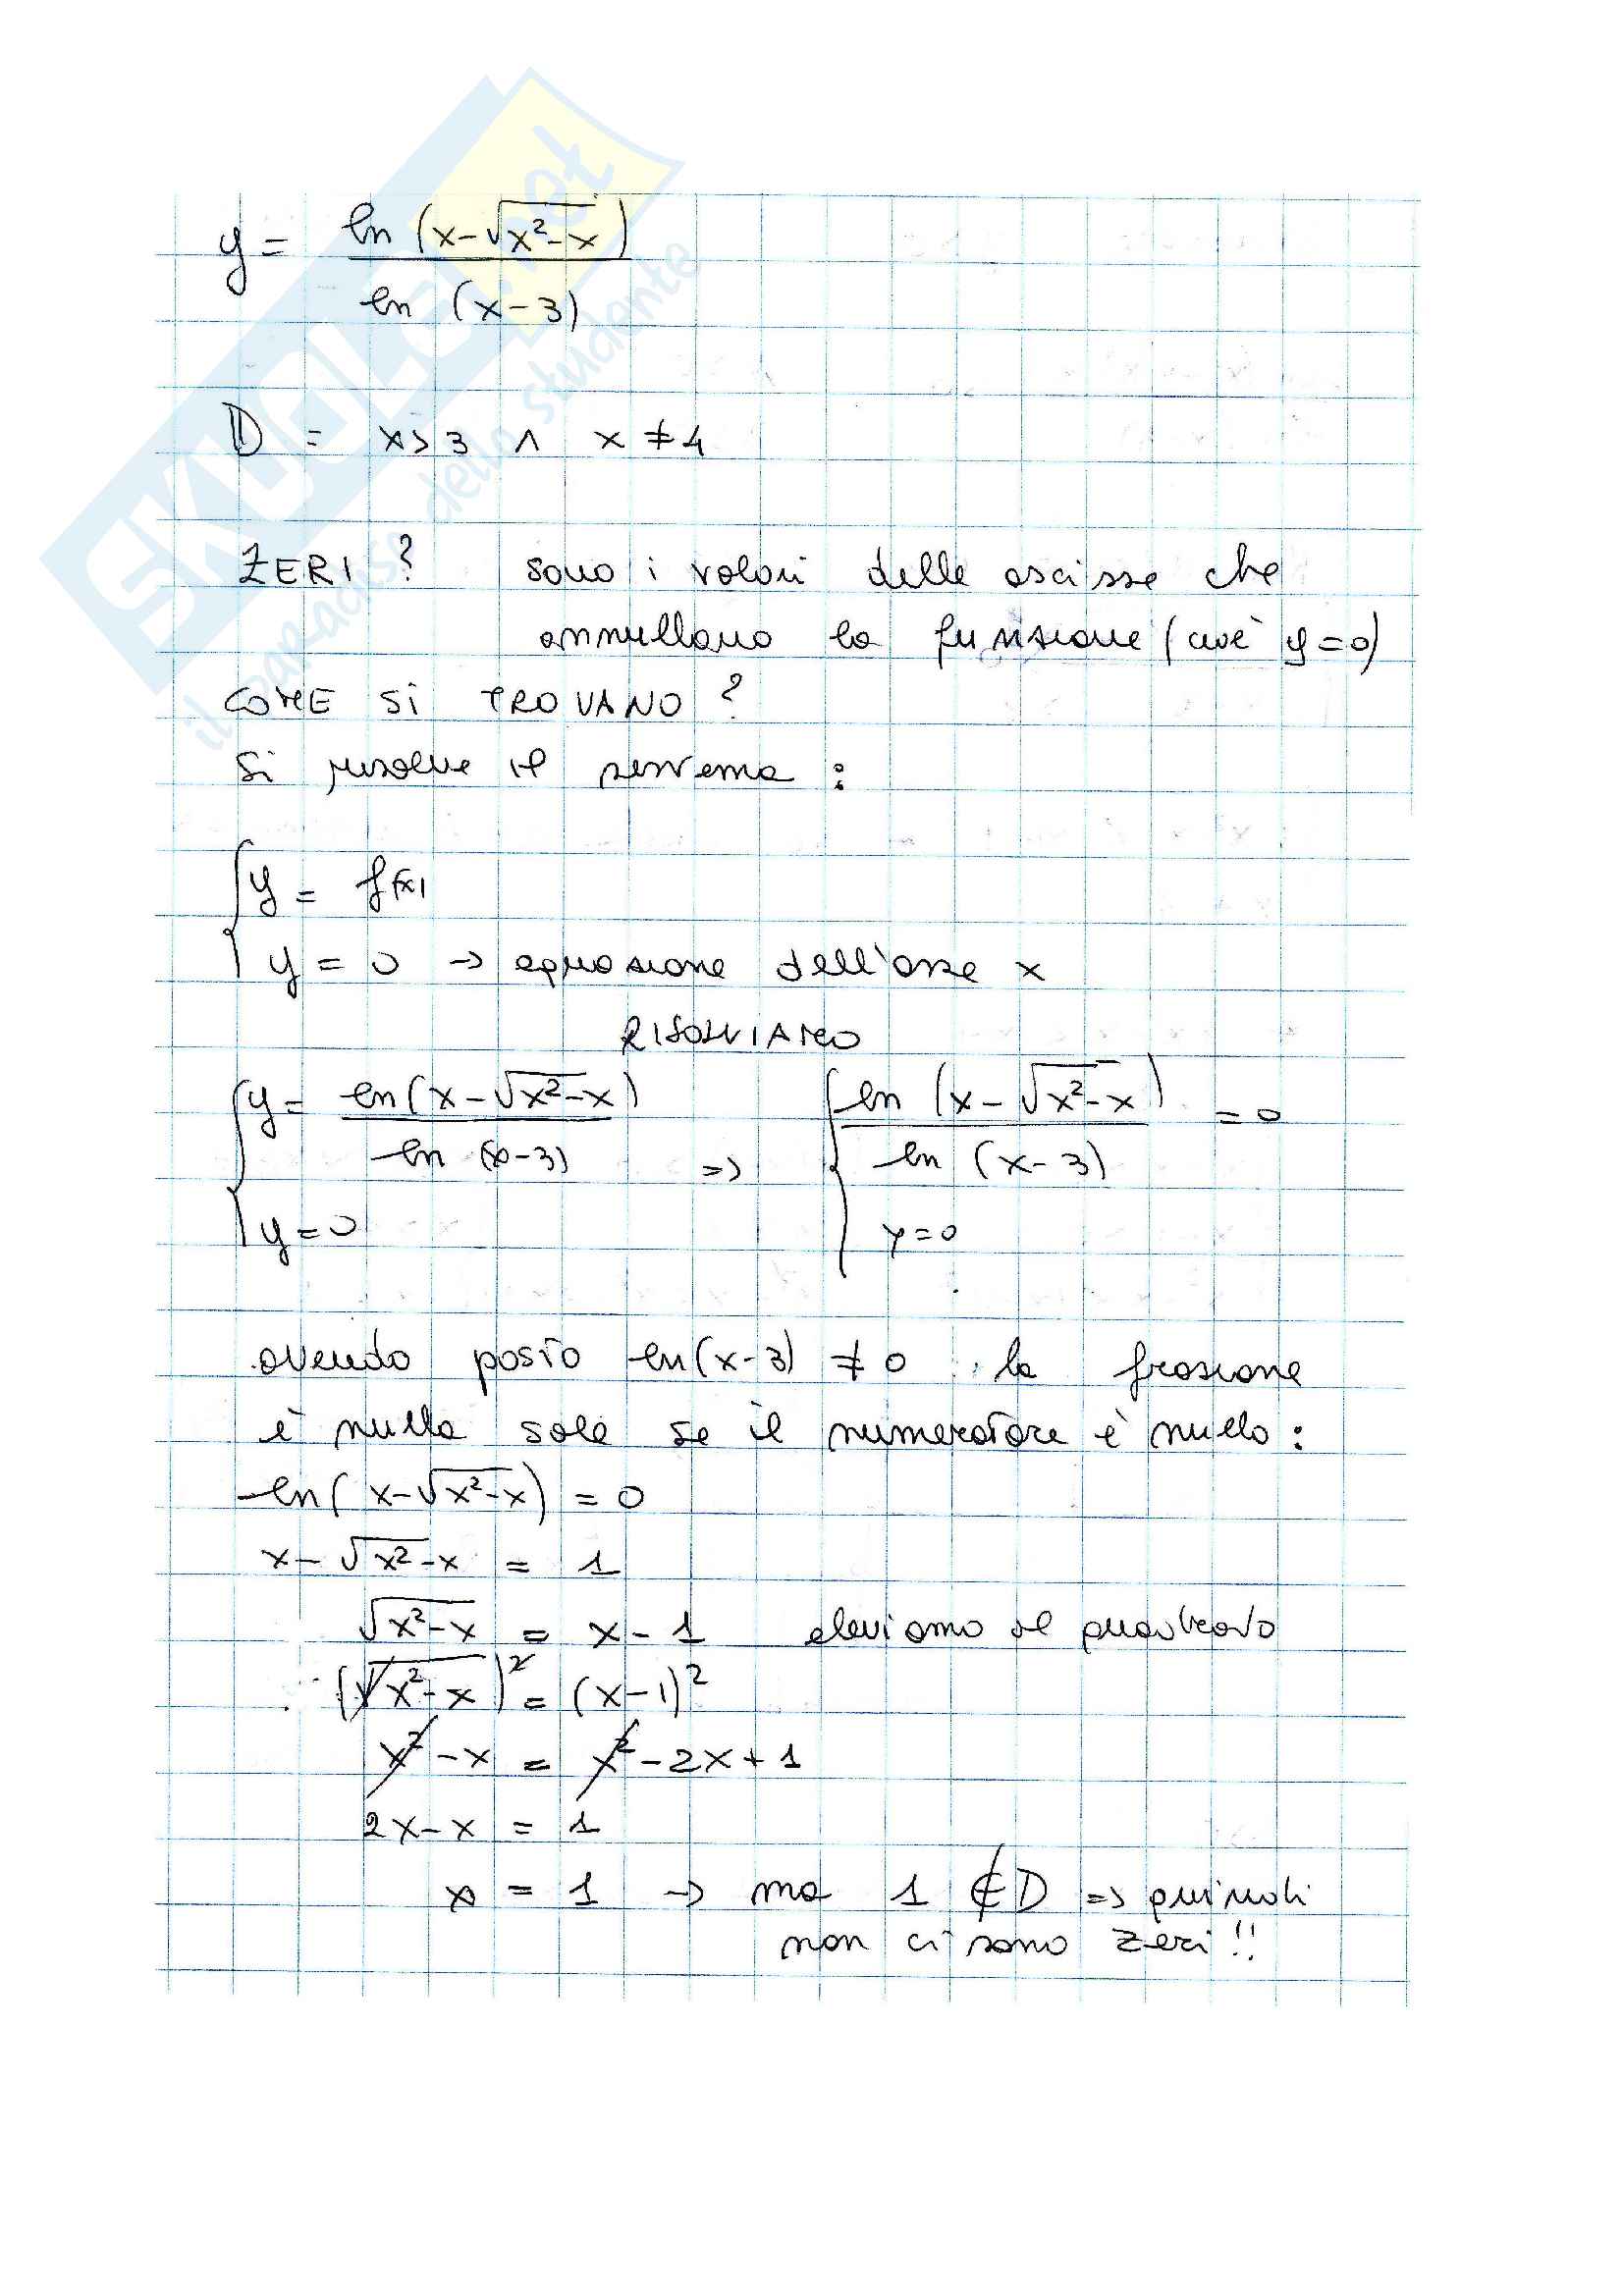 SKUOLA.net
il paradiso dello studente
y = ln (x-√x²-x) / ln (x-3)
D = x>3 ∧ x≠4
ZERI? sono i valori delle ascisse che
annullano la funzione (cioè y=0)
COME SI TROVANO?
Si risolve il sistema:
{ y = f(x)
{ y = 0 → equazione dell'asse x
RISOLVIAMO
{ y = ln(x-√x²-x) / ln (x-3) => { ln (x-√x²-x) / ln (x-3) = 0
{ y=0 { y=0
avendo posto ln(x-3) ≠ 0 la frazione
è nulla solo se il numeratore è nullo:
ln(x-√x²-x) = 0
x-√x²-x = 1
√x²-x = x-1 eleviamo al quadrato
(√x²-x)² = (x-1)²
x²-x = x²-2x+1
2x-x = 1
x = 1 → ma 1 ∉ D => quindi
non ci sono zeri!!